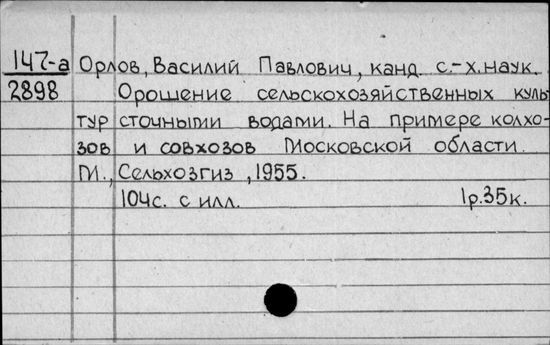 147-а Орлов, Василий Павлович, канд. с.-х. наук.
2898 Орошение сельскохозяйственных куль-
тур сточными водами. На примере колхо-
зов и совхозов Московской области.
М., Сельхозгиз, 1955.
104с. с илл. 1р.35к.